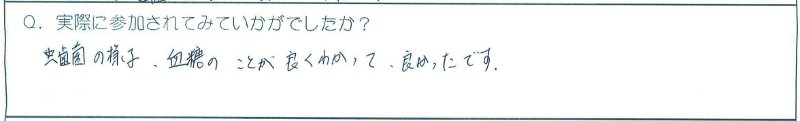 Q. 実際に参加されてみていかがでしたか？
虫歯菌の様子、血糖のことが良くわかって、良かったです。